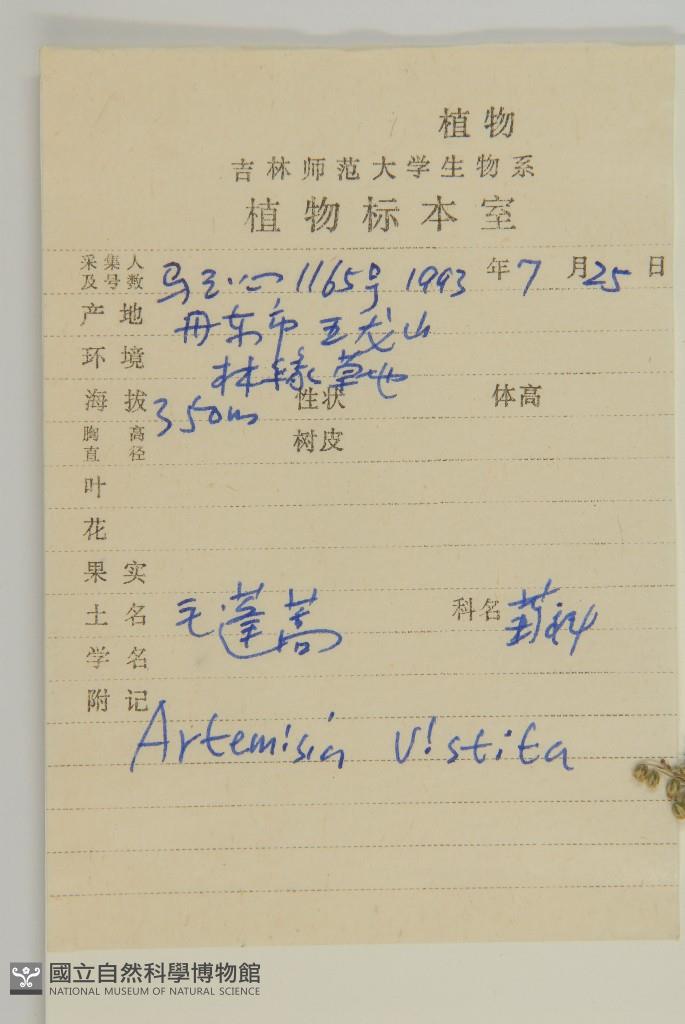 植物
吉林师范大学生物系
植物标本室
采集人及号数 1165号 1993年7月25日
产地 丹东市五龙山
环境 林缘草地
海拔 350m 性状 体高
胸高直径 树皮
叶
花
果实
土名 毛莲蒿 科名 菊科
学名
附记
Artemisia vistita
國立自然科學博物館
NATIONAL MUSEUM OF NATURAL SCIENCE